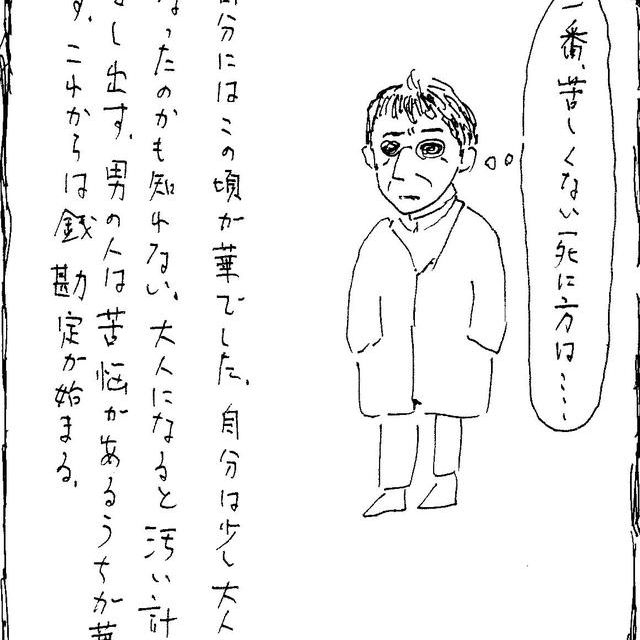 一番、苦しくない死に方は……
自分にはこの頃が華でした。自分は少し大人
なったのかも知れない。大人になると汚い計
し出す。男の人は苦悩があるうちが華
す。これからは銭勘定が始まる。